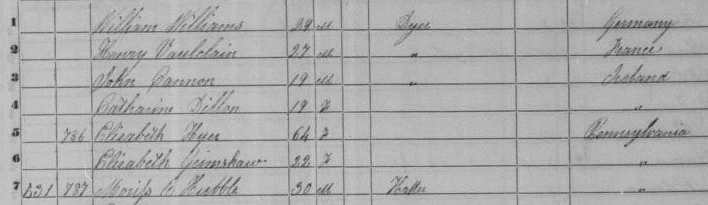 1 William Williams 29 M Dyer Germany
2 Henry Vauclain 27 M " France
3 John Cannon 19 M " Ireland
4 Catharine Dillon 19 F "
5 786 Elizabeth 64 F Pennsylvania
6 Elizabeth Grimshaw 22 F "
7 631 787 E Hubble 30 M Hatter "